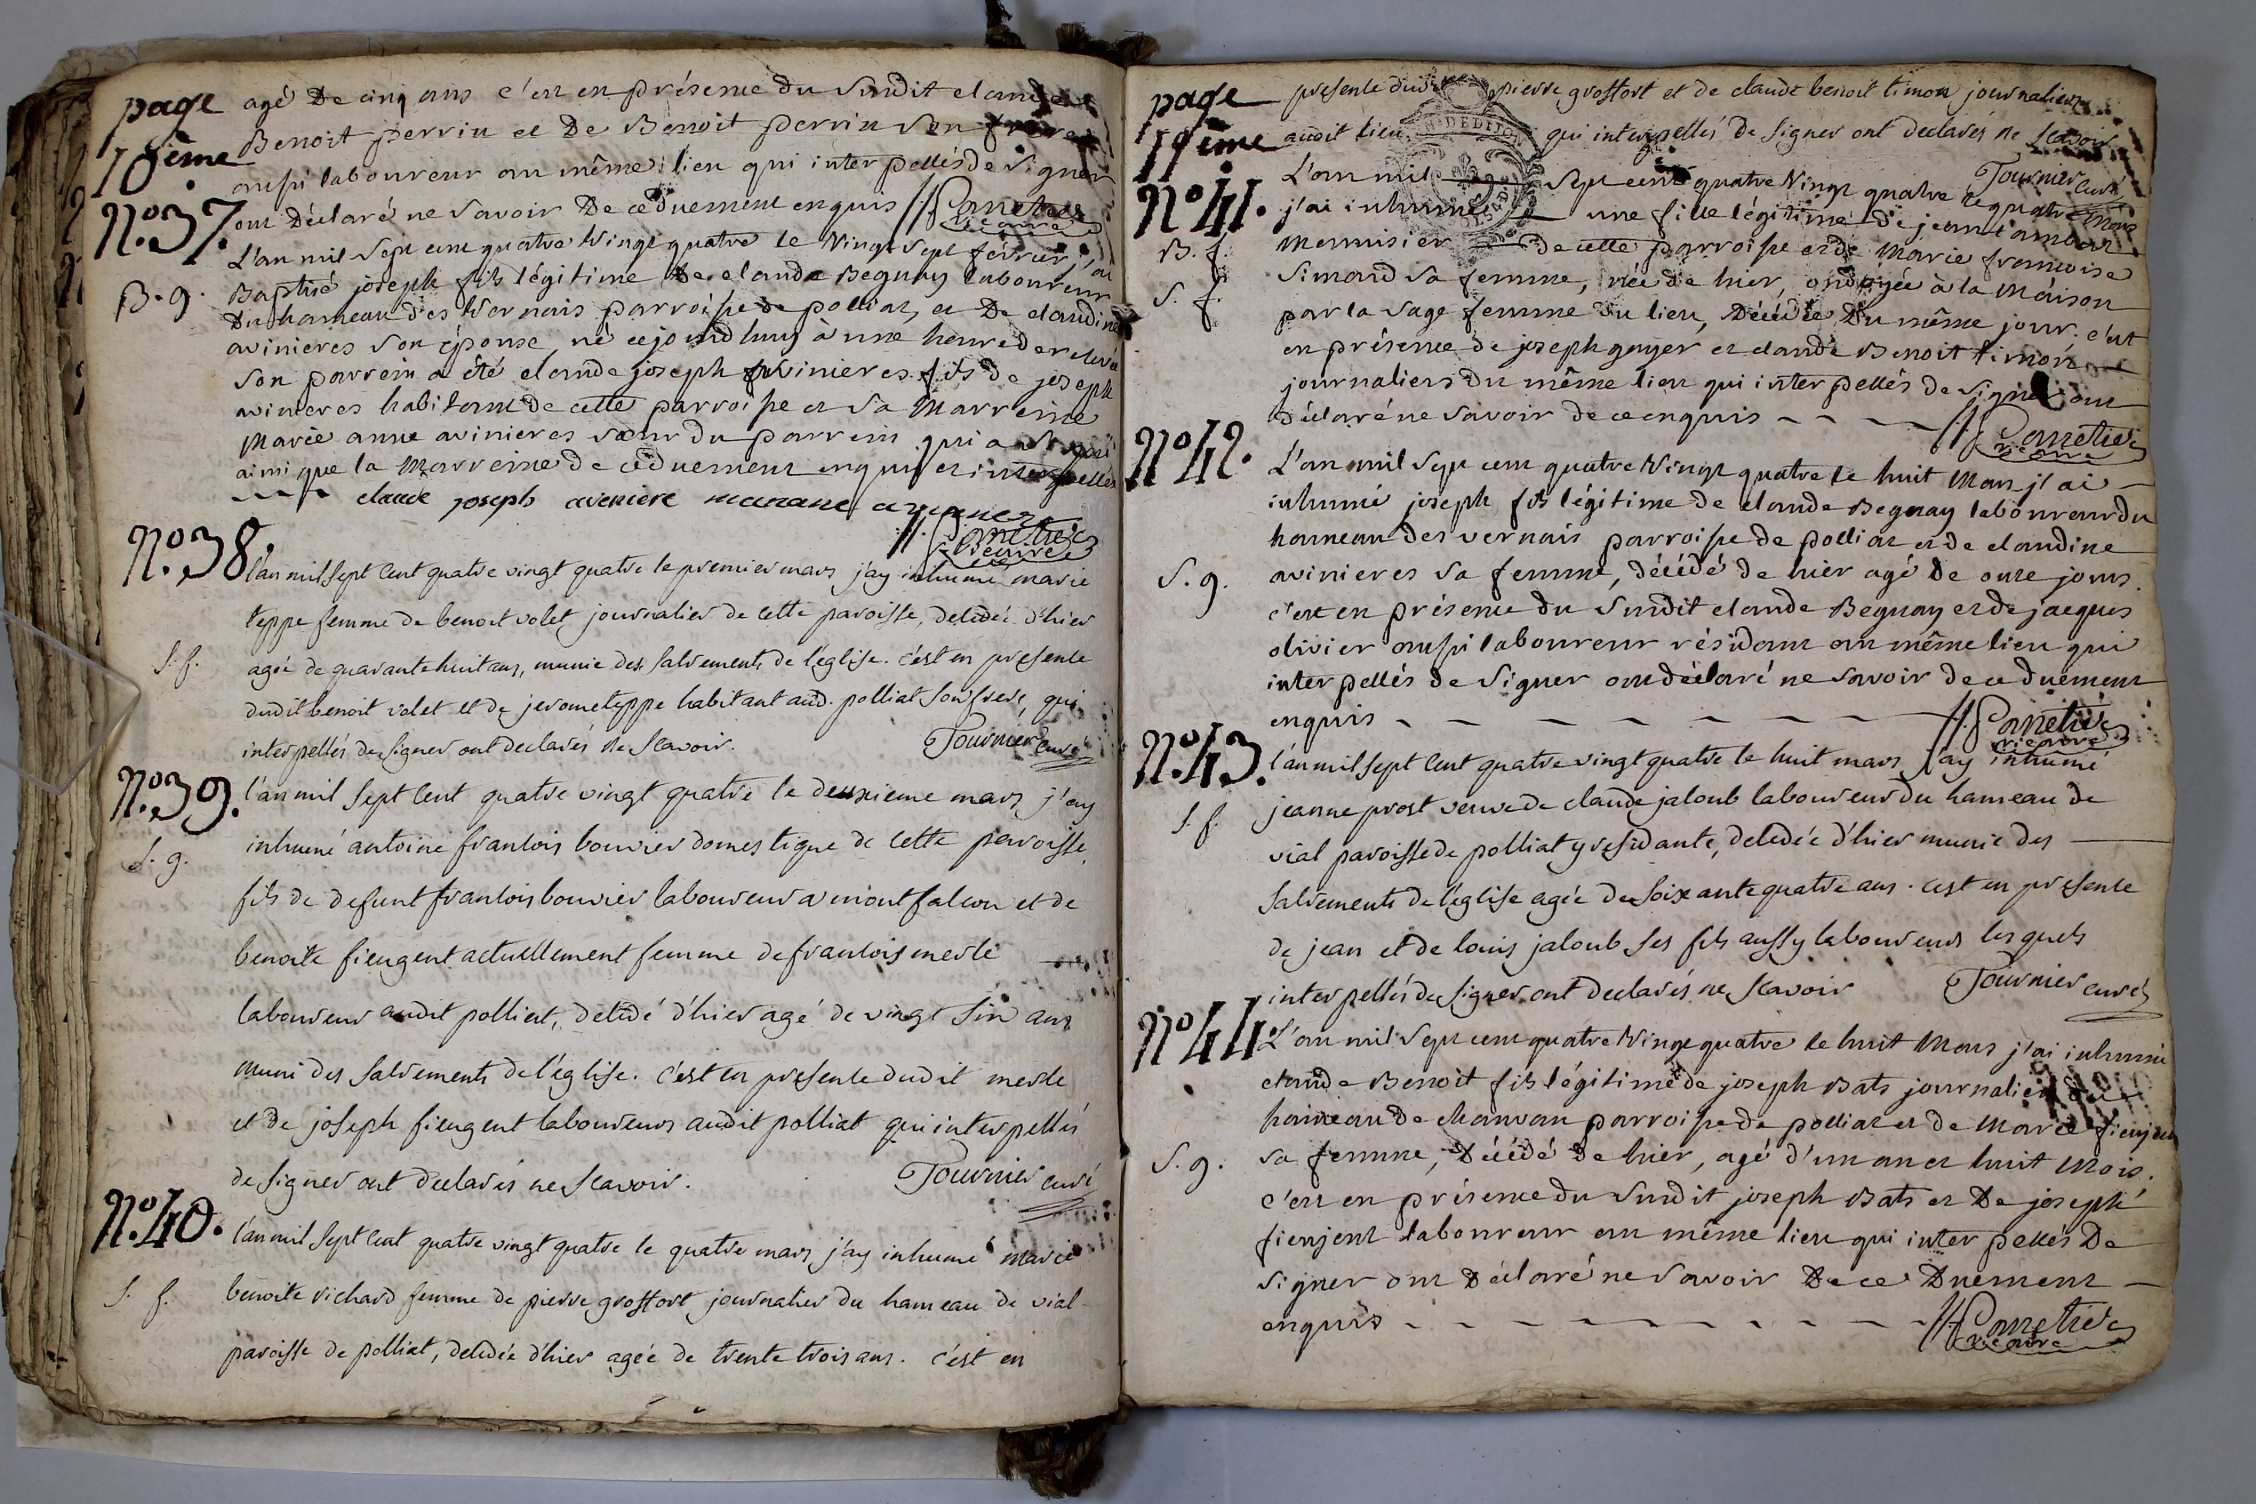 page
18ème
agé De cinq ans c'est en présence du Susdit claude
Benoit perrin et De Benoit perrin son frere
aussi laboureur au même lieu qui interpellés de signer
ont Déclaré ne savoir De ce Duement enquis
Vicaire
N.º37.
B. g.
L'an mil sept cent quatre Vingt quatre le Vingt sept février j'ai
Baptisé joseph fils légitime De claude Beguay laboureur
Du hameau des Vernais parroisse de polliat, et De claudine
avinieres son épouse, né cejourdhuy à une heure
son parrein a été claude joseph avinieres fils de joseph
avinieres habitant de cette parroisse et sa Marreine
Marie anne avinieres sœur du parrein qui a signé
ainsi que la Marreine De ce duement enquis et interpellés
claude joseph aveniere mariane
Vicaire
N.º38.
S. f.
l'an mil sept cent quatre vingt quatre le premier mars j'ay inhumé marie
teppe femme de benoit volet journalier de cette paroisse, decedée d'hier
agée de quarante huit ans, munie des sacrements de l'église. c'est en presence
dudit benoit volet et de jerome teppe habitant aud. polliat son frere, qui
interpellés de signer ont declarés ne scavoir. Tournier curé
N.º39.
S. g.
l'an mil sept cent quatre vingt quatre le deuxieme mars j'ay
inhumé antoine francois bouvier domestique de cette paroisse,
fils de defunt francois bouvier laboureur a montfalcon et de
benoite fieugent actuellement femme de francois merle
laboureur audit polliat, decedé d'hier agé de vingt ans
muni des sacrements de l'église. c'est en presence dudit merle
et de joseph fieugent laboureurs audit polliat qui interpellés
de signer ont declarés ne scavoir. Tournier curé
N.º40.
S. f.
l'an mil sept cent quatre vingt quatre le quatre mars j'ay inhumé marie
benoite richard femme de pierre grosfort journalier du hameau de vial
paroisse de polliat, decedée d'hier agée de trente trois ans. c'est en
page
19ème
presence dudit pierre grosfort et de claude benoit timon journaliers
audit lieu qui interpellés de signer ont declarés ne scavoir
Tournier curé
N.º41.
B. f.
S. f.
L'an mil sept cent quatre Vingt quatre le quatre Mars
j'ai inhumé une fille légitime de jean
Menuisier de cette parroisse et de Marie francoise
simand sa femme, née de hier, ondoyée à la Maison
par la sage femme du lieu, Décédée Du même jour. c'est
en présence de joseph goyer et claude Benoit timon
journaliers du même lieu qui interpellés de signer ont
Déclaré ne savoir de ce enquis
Vicaire
N.º42.
S. g.
L'an mil sept cent quatre Vingt quatre le huit Mars j'ai
inhumé joseph fils légitime de claude Beguay laboureur du
hameau des vernais parroisse de polliat et de claudine
avinieres sa femme, décédé de hier agé De onze jours.
c'est en présence du Susdit claude Beguay et de jacques
olivier aussi laboureur résidant au même lieu qui
interpellés de signer ont déclaré ne savoir de ce duement
enquis
Vicaire
N.º43.
S. f.
l'an mil sept cent quatre vingt quatre le huit mars j'ay inhumé
jeanne prost veuve de claude jaloub laboureur du hameau de
vial paroisse de polliat y residante, decedée d'hier munie des
sacrements de l'église agée de soixante quatre ans. c'est en presence
de jean et de louis jaloub ses fils aussy laboureurs lesquels
interpellés de signer ont declarés ne scavoir Tournier curé
N.º44.
S. g.
L'an mil sept cent quatre Vingt quatre le huit Mars j'ai inhumé
claude Benoit fils légitime de joseph Bats journalier du
hameau de chanvan parroisse de polliat et de Marie fienjent
sa femme, Décédé De hier, agé d'un an et huit Mois.
c'est en présence du Susdit joseph Bats et De joseph
fienjent laboureur au même lieu qui interpellés De
signer ont Déclaré ne savoir De ce Duement
enquis
Vicaire